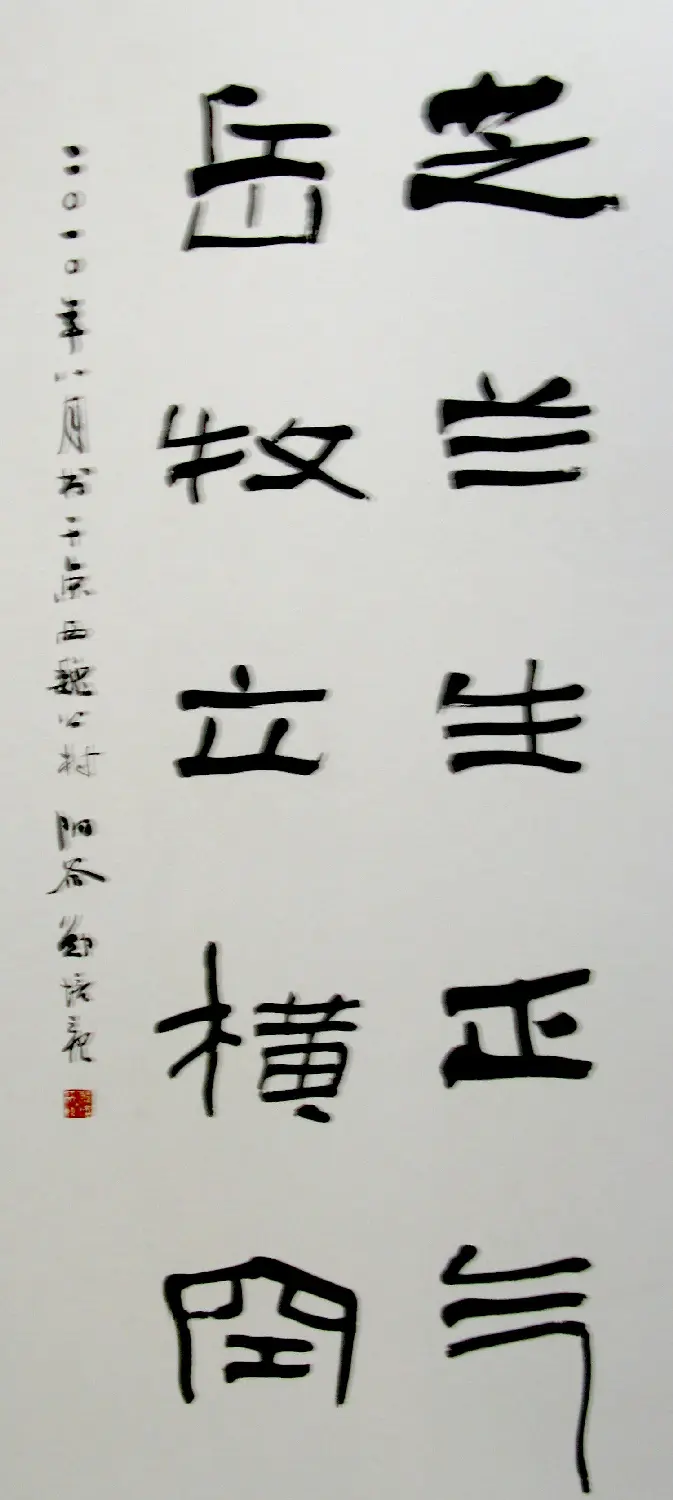 芝兰生正气
岳牧立横空
二〇一〇年八月书于京西魏公村 阳谷